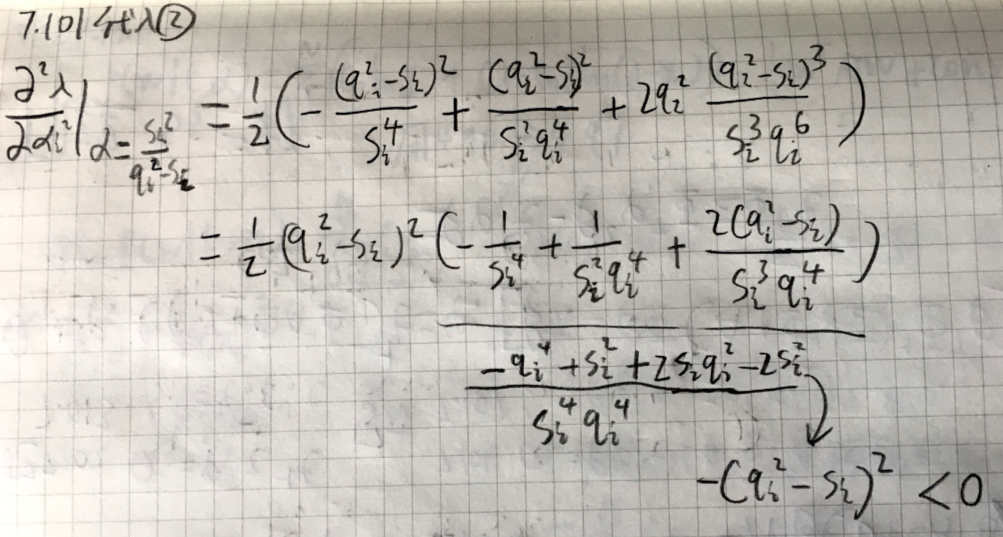 7.101 代入②
∂²λ/∂αᵢ² |α=sᵢ²/(qᵢ²-sᵢ) = 1/2 ( - (qᵢ²-sᵢ)²/sᵢ⁴ + (qᵢ²-sᵢ)²/(sᵢ²qᵢ⁴) + 2qᵢ² (qᵢ²-sᵢ)³/(sᵢ³qᵢ⁶) )
= 1/2 (qᵢ²-sᵢ)² ( - 1/sᵢ⁴ + 1/(sᵢ²qᵢ⁴) + 2(qᵢ²-sᵢ)/(sᵢ³qᵢ⁴) )
(-qᵢ⁴ + sᵢ² + 2sᵢqᵢ² - 2sᵢ²)/(sᵢ⁴qᵢ⁴)
-(qᵢ²-sᵢ)² < 0